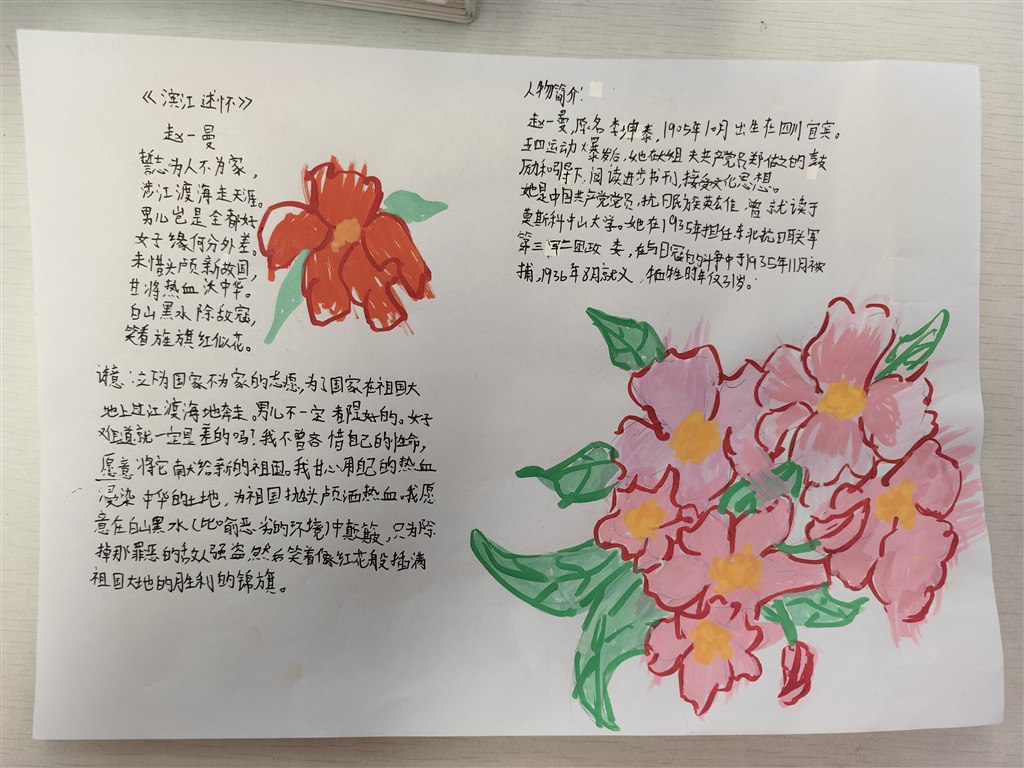 《滨江述怀》
赵一曼
誓志为人不为家，
涉江渡海走天涯。
男儿岂是全都好
女子缘何分外差。
未惜头颅新故国，
甘将热血沃中华。
白山黑水除敌寇，
笑看旌旗红似花。
译意：立下为国家不为家的志愿，为了国家在祖国大
地上过江渡海地奔走。男儿不一定都是好的。女子
难道就一定是差的吗？我不曾吝惜自己的性命，
愿意将它献给新的祖国。我甘心用自己的热血
浸染中华的土地，为祖国抛头颅洒热血。我愿
意在白山黑水（比喻恶劣的环境）中颠簸，只为除
掉那罪恶的敌人强盗，然后笑着像红花般插满
祖国大地的胜利的锦旗。
人物简介：
赵一曼，原名李坤泰，1905年10月出生在四川宜宾。
五四运动爆发后，她在大姐夫共产党员郑佑之的鼓
励和引导下，阅读进步书刊，接受文化思想。
她是中国共产党党员，抗日民族英雄，曾就读于
莫斯科中山大学。她在1935年担任东北抗日联军
第三 二团政委，在与日寇的斗争中于1935年11月被
捕，1936年8月就义，牺牲时年仅31岁。